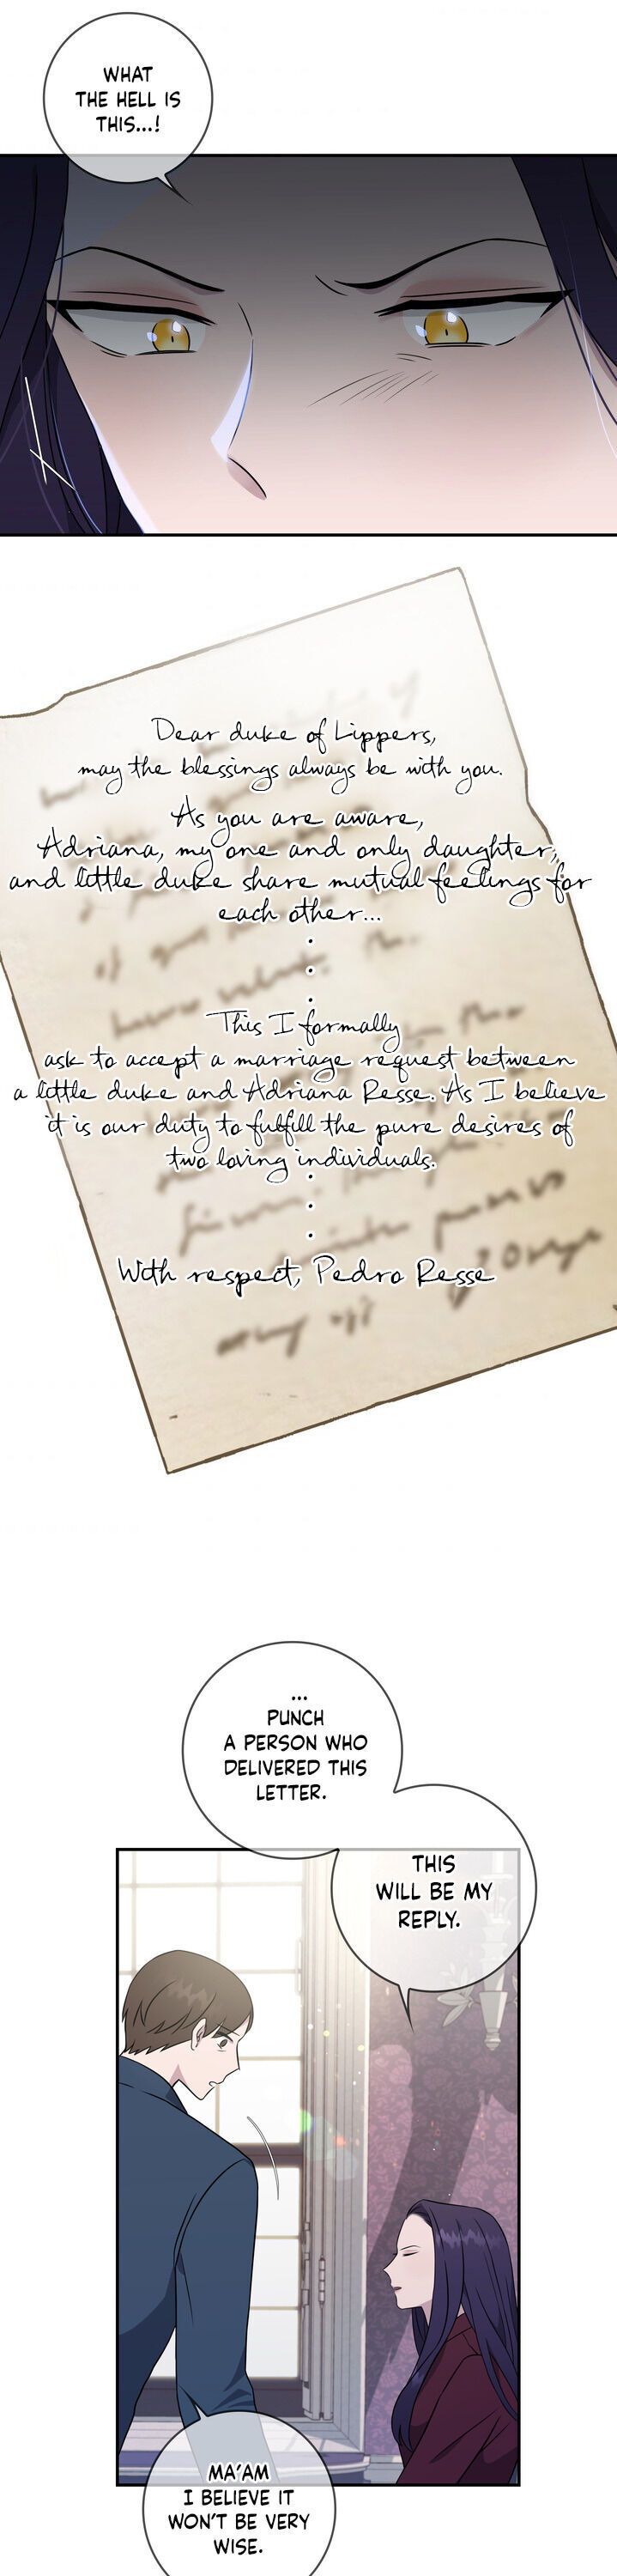 WHAT
THE HELL IS
THIS...!
Dear duke of Lippers,
may the blessings always be with you.
As you are aware,
Adriana, my one and only daughter,
and little duke share mutual feelings for
each other...
.
.
.
This I formally
ask to accept a marriage request between
a little duke and Adriana Resse. As I believe
it is our duty to fulfill the pure desires of
two loving individuals.
.
.
.
With respect, Pedro Resse
...
PUNCH
A PERSON WHO
DELIVERED THIS
LETTER.
THIS
WILL BE MY
REPLY.
MA'AM
I BELIEVE IT
WON'T BE VERY
WISE.